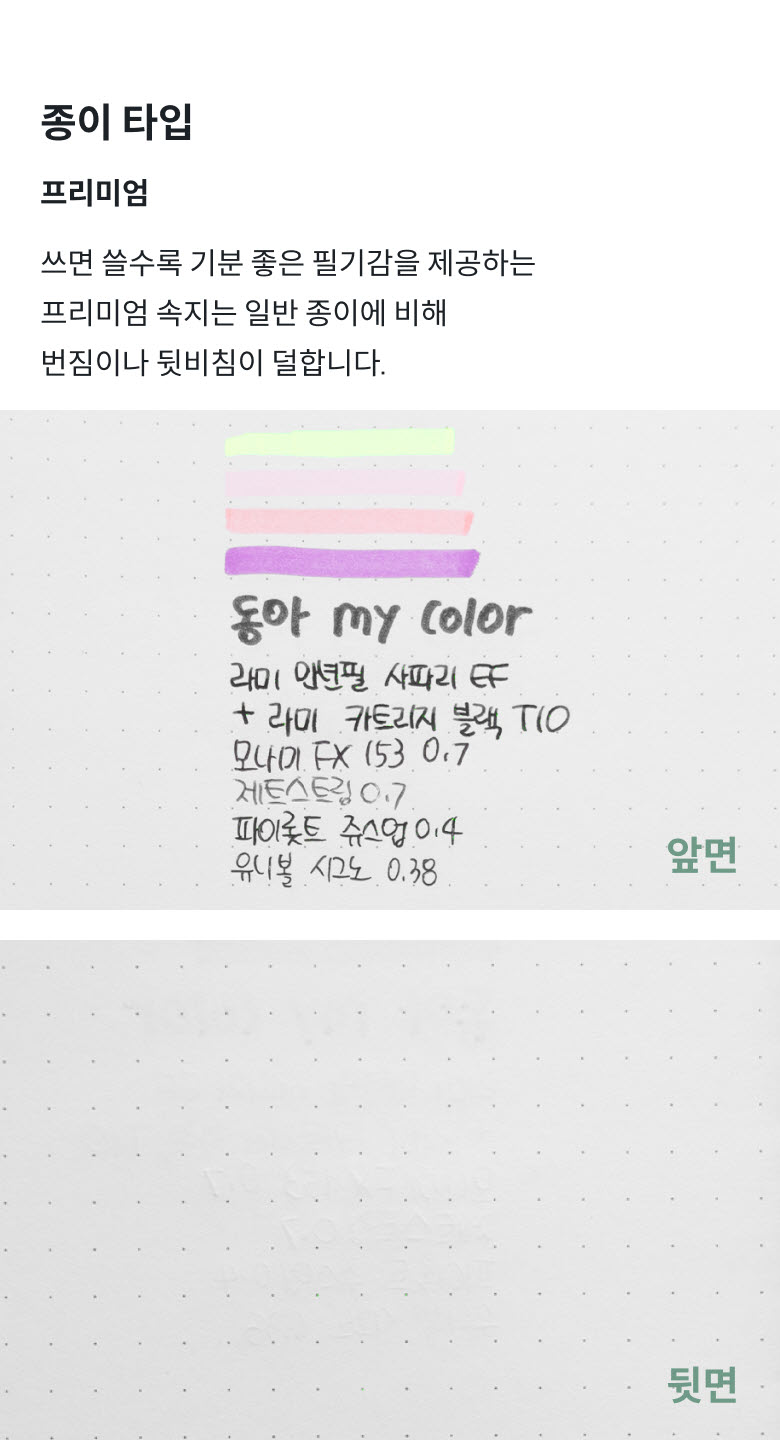 종이 타입
프리미엄
쓰면 쓸수록 기분 좋은 필기감을 제공하는
프리미엄 속지는 일반 종이에 비해
번짐이나 뒷비침이 덜합니다.
동아 my color
라미 만년필 사파리 EF
+ 라미 카트리지 블랙 T10
모나미 FX 153 0.7
제트스트림 0.7
파이롯트 쥬스업 0.4
유니볼 시그노 0.38
앞면
뒷면